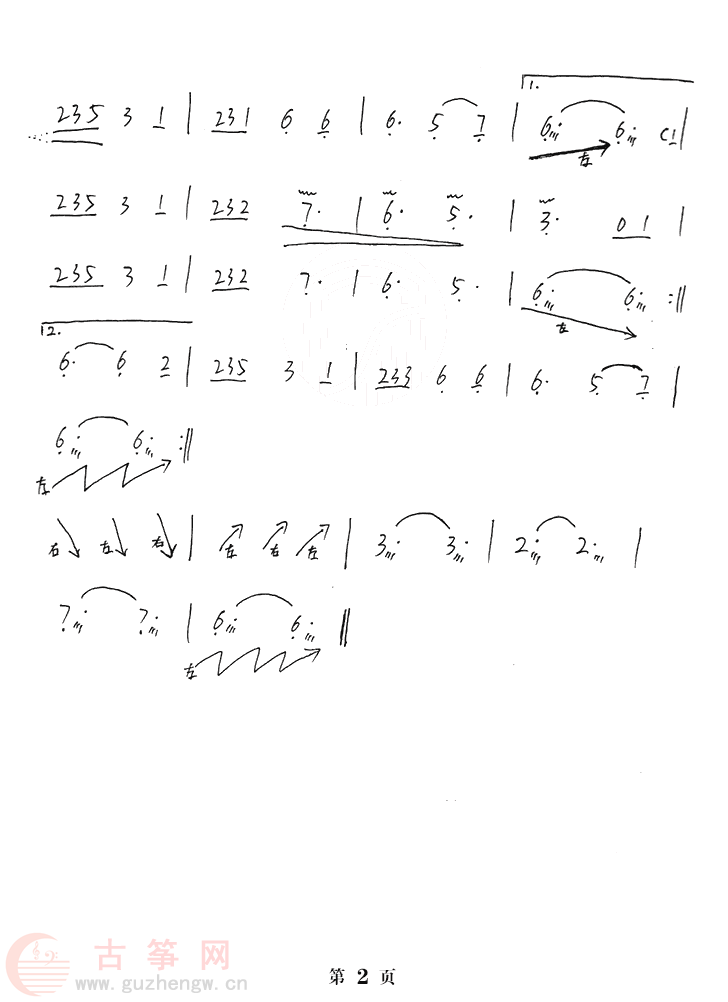 1.
235 3 1 | 231 6 6 | 6· 5 7 | 6· 6· (1 |
左
235 3 1 | 232 7· | 6· 5· | 3· 0 1 |
235 3 1 | 232 7· | 6· 5· | 6· 6· :||
左
2.
6· 6 2 | 235 3 1 | 233 6 6 | 6· 5 7 |
6· 6· :||
左
右 左 右 | 左 右 左 | 3· 3· | 2· 2· |
7· 7· | 6· 6· ||
左
古筝网
www.guzhengw.cn
第 2 页